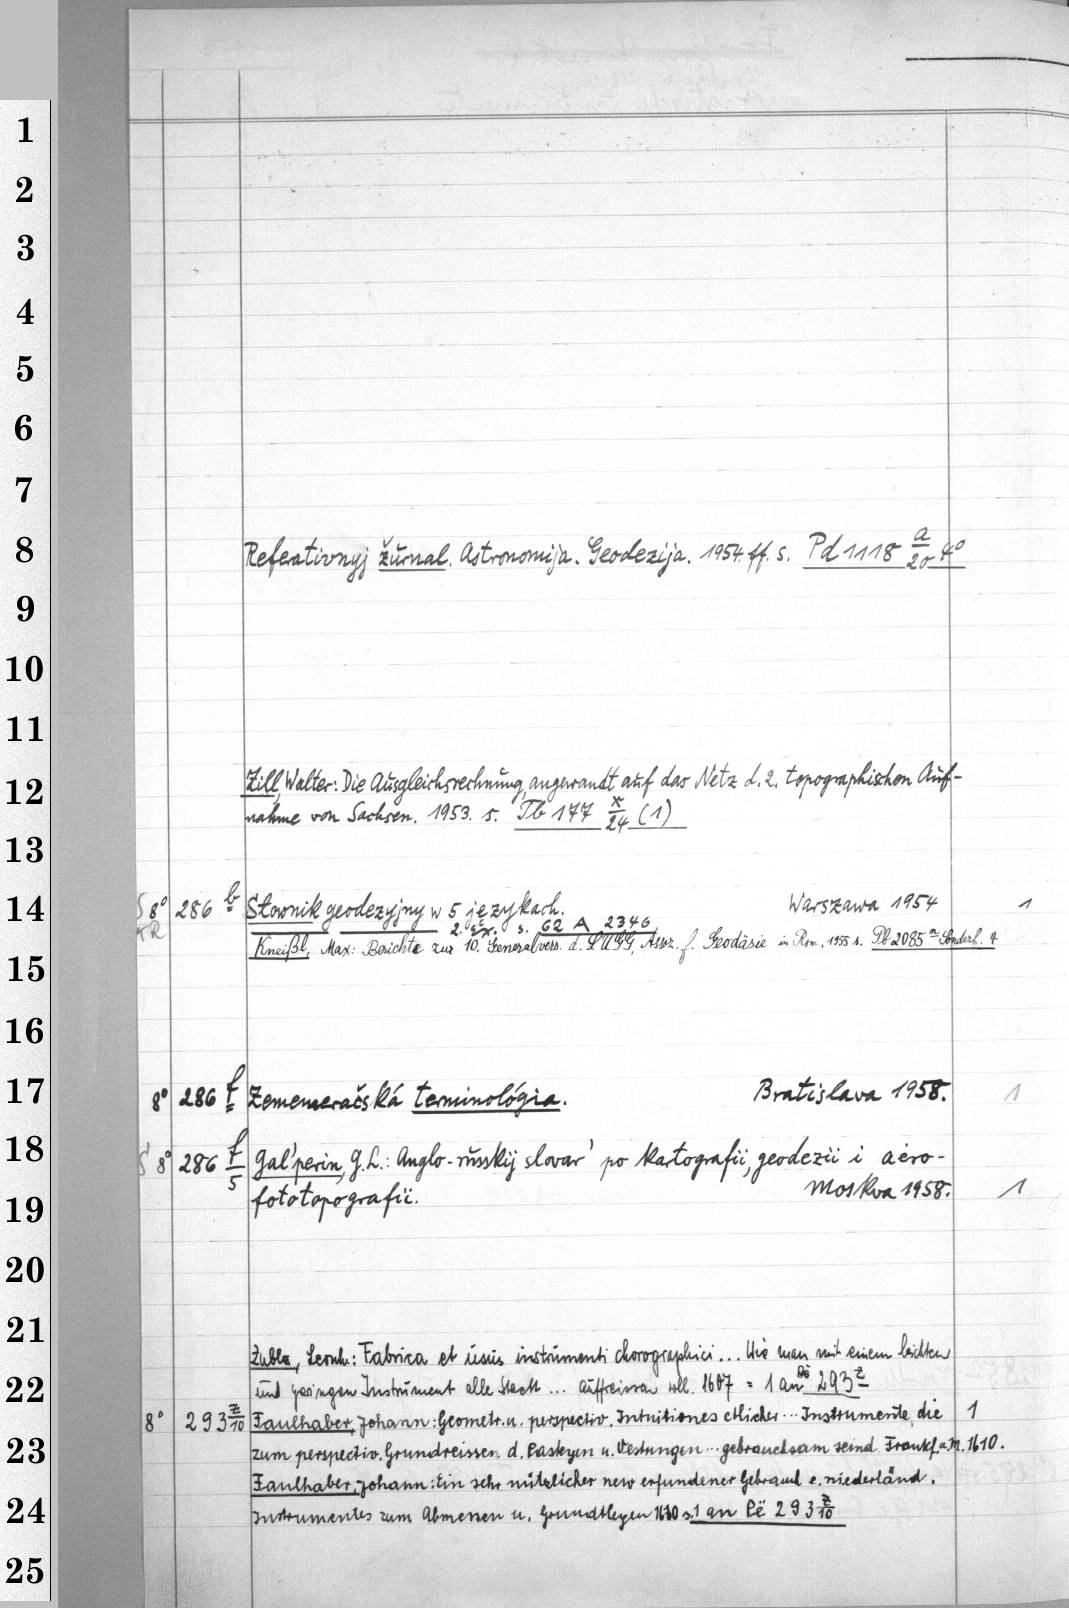 1
2
3
4
5
6
7
8 Referativnyj žurnal. Astronomija. Geodezija. 1954 ff. s. Pd 1118 a/20 4°
9
10
11
12 Zill, Walter: Die Ausgleichsrechnung, angewandt auf das Netz d. 2. topographischen Auf-
nahme von Sachsen. 1953. s. Tb 177 x/24 (1)
13
14 8° 286 b Słownik geodezyjny w 5 językach. Warszawa 1954 1
2. Ex. s. 62 A 2346
Kneißl, Max: Berichte zur 10. Generalvers. d. Assoz. f. Geodäsie in Rom, 1955 s. Pb 2085 Sonderh. 4
15
16
17 8° 286 f Zememeračská terminológia. Bratislava 1958. 1
18 8° 286 f/5 Gal'perin, G.L.: Anglo-russkij slovar' po kartografii, geodezii i aėro-
19 fototopografii. Moskva 1958. 1
20
21
Zubler, Leonh.: Fabrica et usus instrumenti chorographici ... Wie man mit einem leichten
22 und geringen Instrument alle Stett ... auffreissen soll. 1607 = 1 an 293 z
8° 293 z/10 Faulhaber, Johann: Geometr. u. perspectiv. Intuitiones etlicher ... Instrumente, die 1
23 zum perspectiv. Grundreissen d. Pasteyen u. Vestungen ... gebrauchsam seind. Frankf. a. M. 1610.
Faulhaber, Johann: Ein sehr nützlicher new erfundener Gebrauch e. niederländ.
24 Instrumentes zum Abmessen u. Grundtlegen 1610 s. 1 an Pë 293 z/10
25